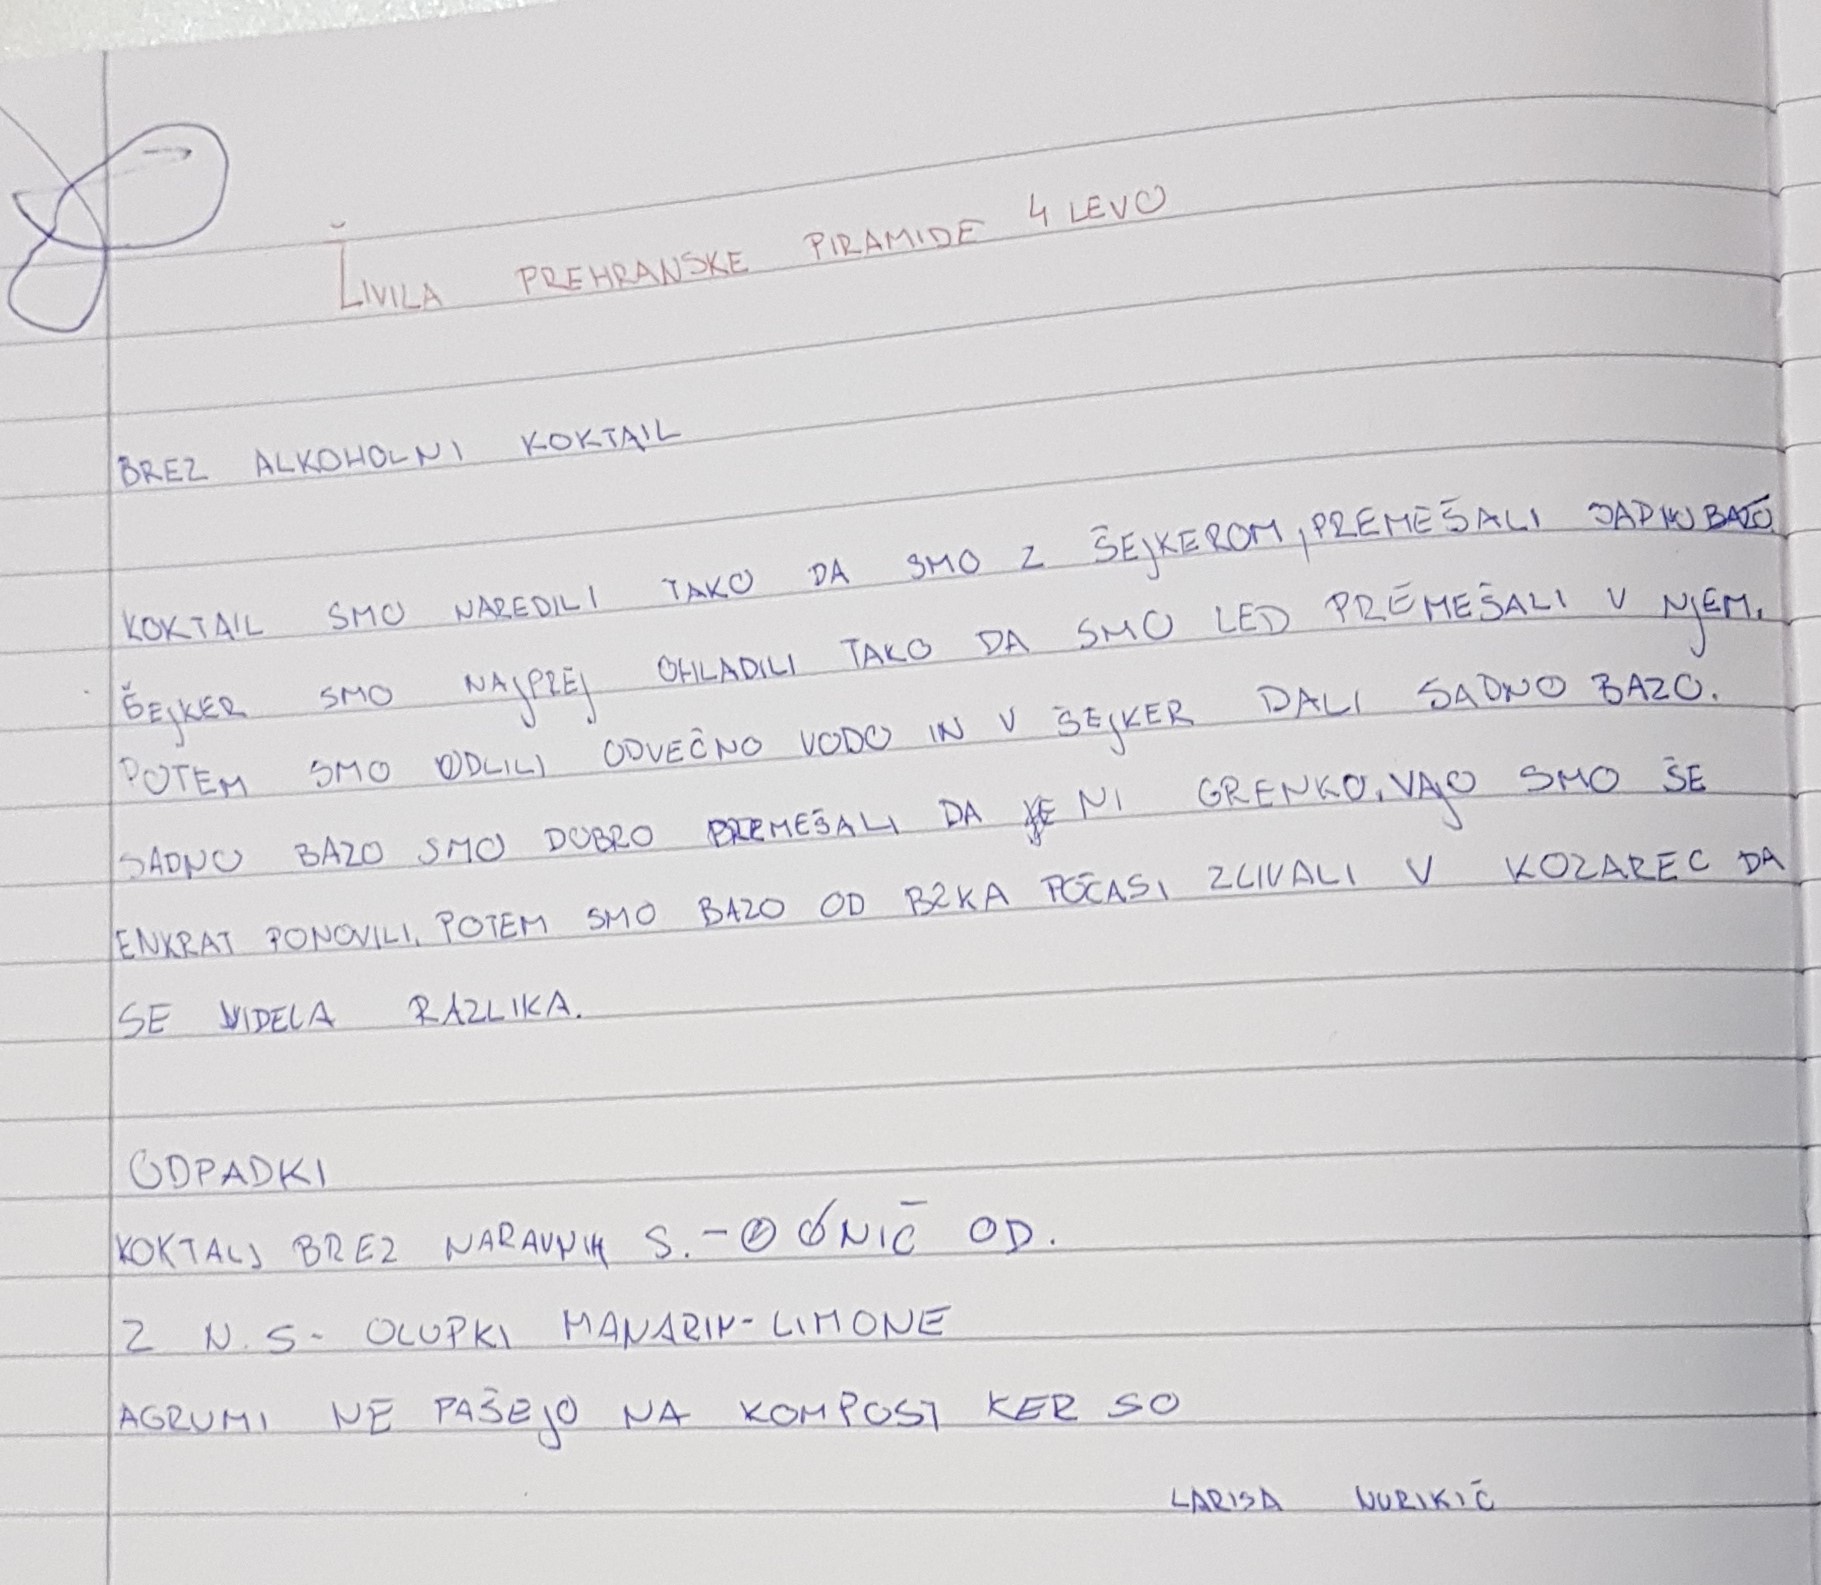 ŽIVILA PREHRANSKE PIRAMIDE 4 LEVO
BREZ ALKOHOLNI KOKTAIL
KOKTAIL SMO NAREDILI TAKO DA SMO Z ŠEJKEROM, PREMEŠALI SADNO BAZO.
ŠEJKER SMO NAJPREJ OHLADILI TAKO DA SMO LED PREMEŠALI V NJEM.
POTEM SMO ODLILI ODVEČNO VODO IN V ŠEJKER DALI SADNO BAZO.
SADNO BAZO SMO DOBRO PREMEŠALI DA NI GRENKO. VAJO SMO ŠE
ENKRAT PONOVILI. POTEM SMO BAZO OD POČASI ZLIVALI V KOZAREC DA
SE VIDELA RAZLIKA.
ODPADKI
KOKTALJ BREZ NARAVNIH S. - NIČ OD.
Z N. S - OLUPKI MANARIN-LIMONE
AGRUMI NE PAŠEJO NA KOMPOST KER SO
LARISA NURIKIĆ